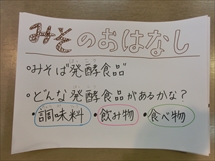 みそのおはなし
・みそは発酵食品
・どんな発酵食品があるかな？
・調味料 ・飲み物 ・食べ物